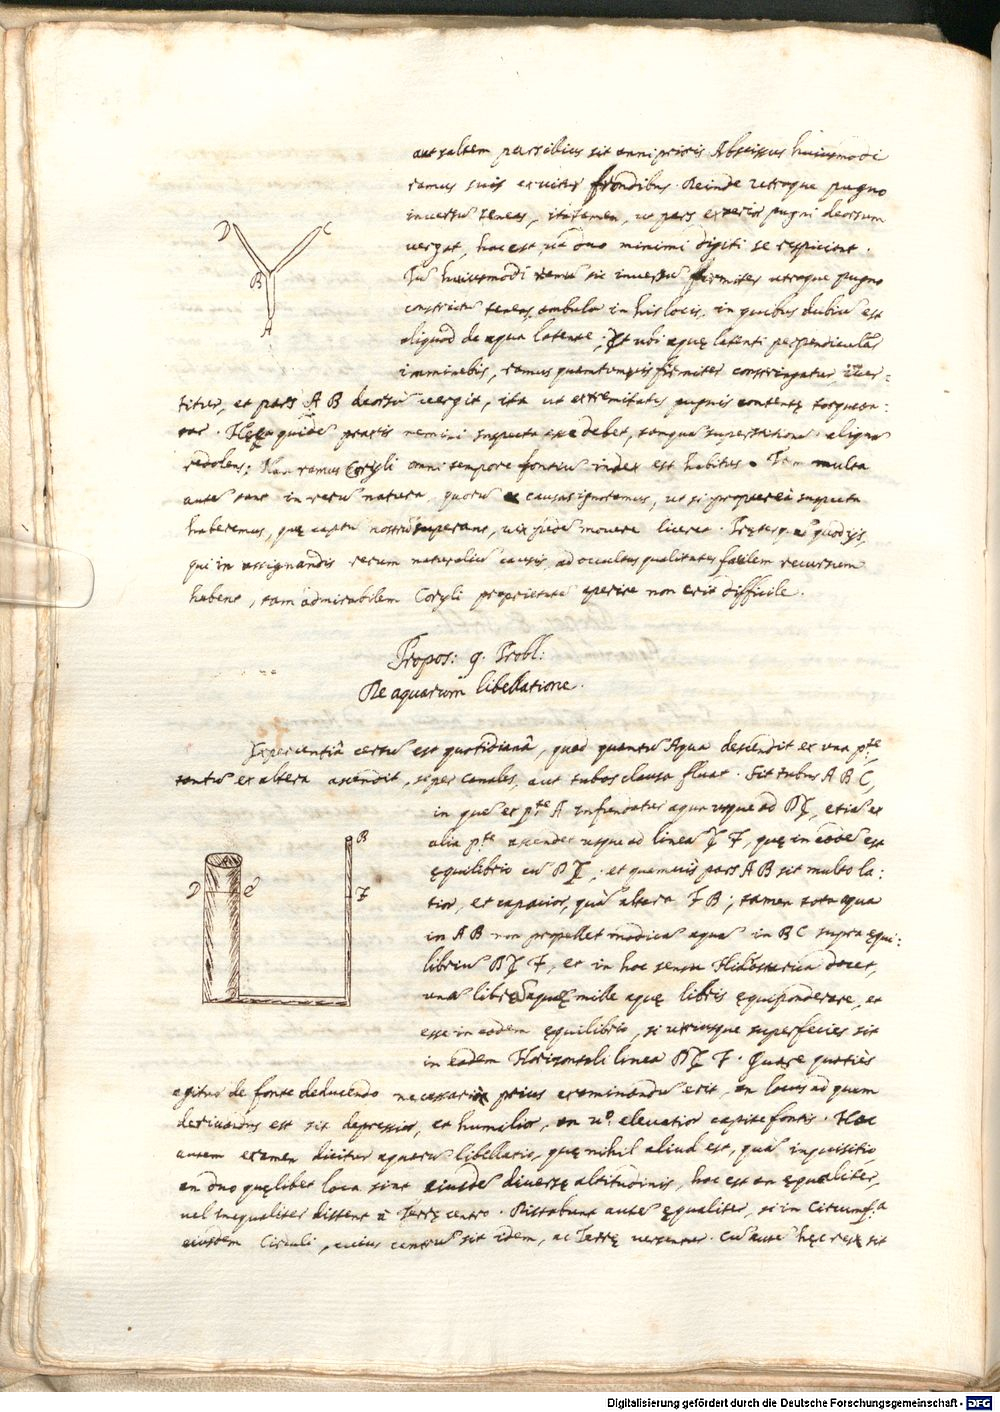 aut saltem parsibilius sit anni prioris Abscissus huiusmodi
ramus suis exuitur frondibus. Deinde utroque pugno
inversū teneas, ita tamen, ut pars exterior pugni deorsum
vergat, hoc est, ut duo minimi digiti se respiciant.
Tū huiusmodi ramū sic inversū firmiter utroque pugno
constrictū teneas, ambula in his locis, in quibus dubiū est
aliquod de aqua latente; Et ubi aquę latenti perpendiculār
imminebis, ramus quantumvis firmiter constringatur, īver=
titur, et pars A B deorsū vergit, ita ut extremitates pugnis contentę torquean:
tur. Hęc quidē praxis nemini suspecta esse debet, tanquā superstitionē aliquā
redolens: Nam ramus Coryli omni tempore fontiū index est habitus. Tam multa
autē sunt in rerū natura, quorū causas ignoramus, ut si propterea suspecta
haberemus, quę captū nostrū superant, vix pedē movere liceret. Pręterquā quod ijs,
qui in assignandis rerum naturaliū causis, ad occultas qualitates facilem recursum
habent, tam admirabilem Coryli proprietatē aperire non erit difficile.
Propos: 9. Probl:
De aquarum libellatione.
Experientiā certū est quotidianā, quod quantū Aqua descendit ex una pte,
tantū ex altera ascendit, si per canales, aut tubos clausa fluat. Sit tubus A B C,
in quē ex pte A infundatur aqua usque ad D E, etiā ex
alia pte ascendet usque ad lineā E F, quę in eodē est
ęquilibrio cū D E, et quamvis pars A B sit multo la:
tior, et capacior, quā altera F B; tamen tota aqua
in A B non propellet modicā aquā in B C supra ęqui:
libriū D E F, et in hoc sensu Hidrostatica docet,
unā librā aquę mille aquę libris ęquiponderare, et
esse in eodem ęquilibrio, si utriusque superficies sit
in eadem Horizontali linea D E F. Quare quoties
agitur de fonte deducendo necessariò prius examinandū erit, an locus ad quem
derivandus est sit depressior, et humilior, an vº elevatior capite fontis. Hoc
autem examen dicitur aquarū libellatio, quę nihil aliud est, quā inquisitio
an duo quęlibet loca sint eiusdē diversę altitudinis, hoc est an ęqualiter,
vel inequaliter distent à Terrę centro. Distabunt autē ęqualiter, si in circumfª
eiusdem Circuli, cuius centrū sit idem, ac Terrę versentur. Cū autē hęc resę sit
D
C
B
A
A
B
D
E
F